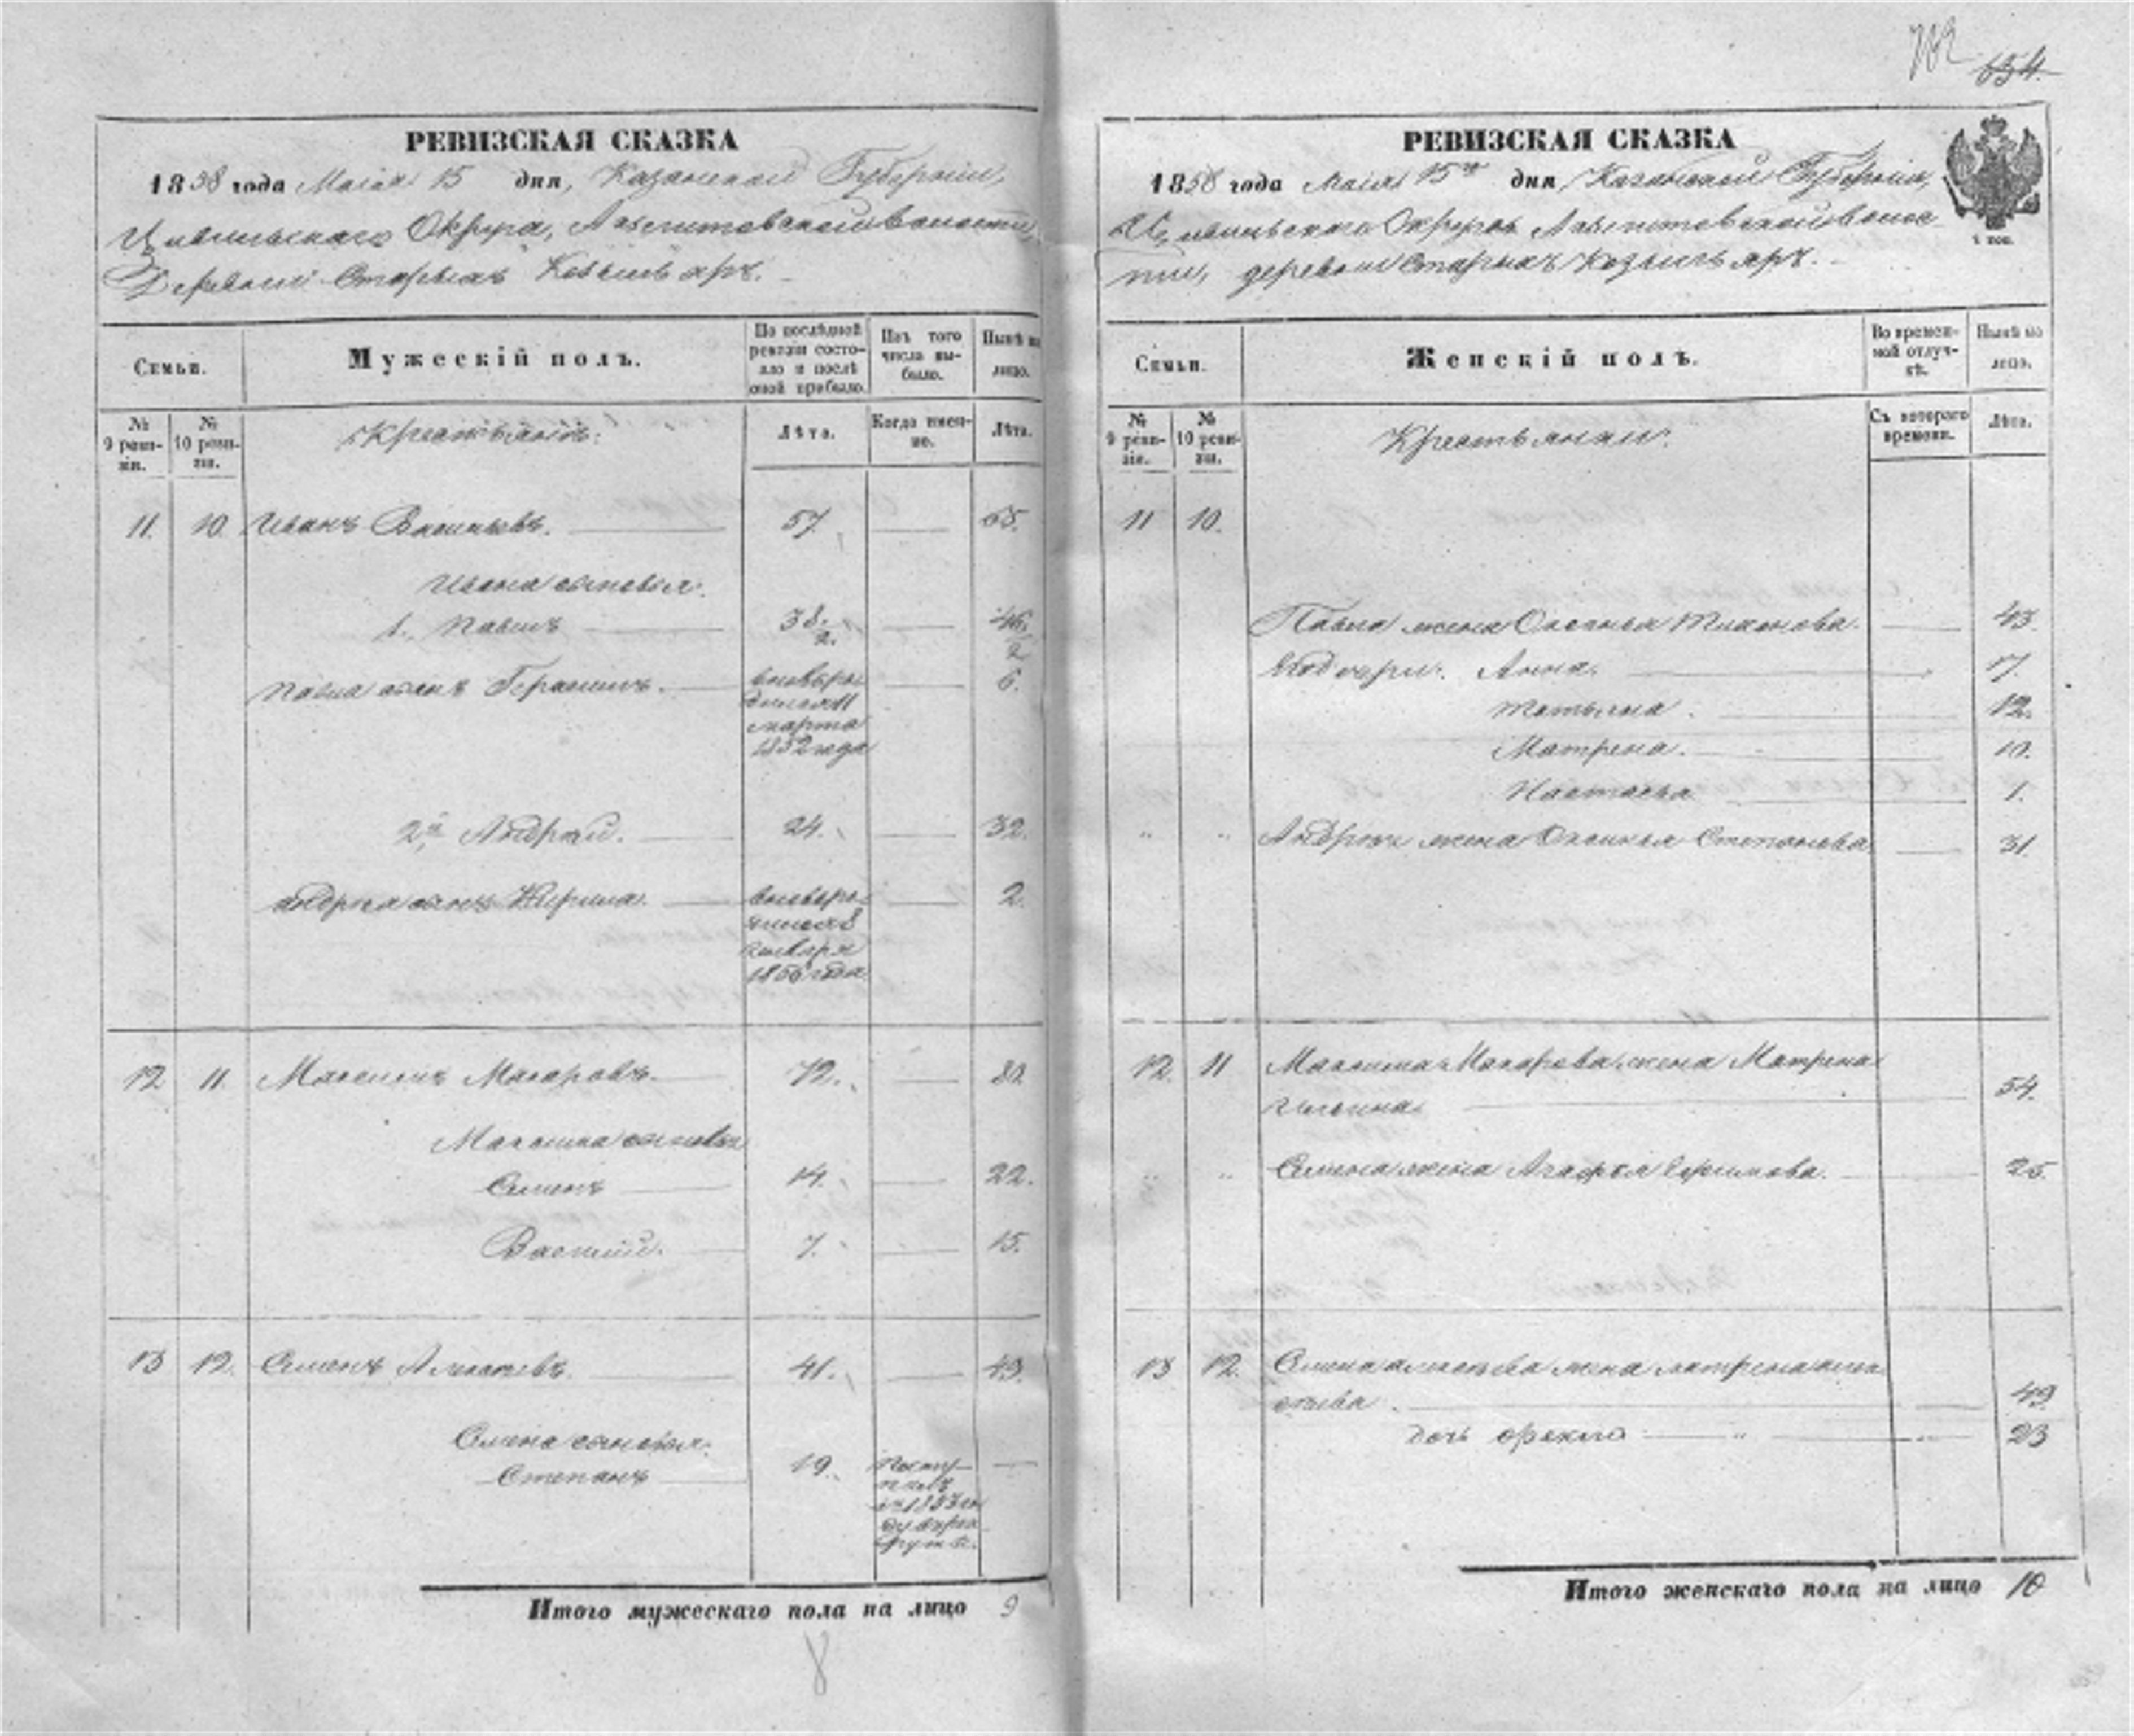 782 654.
РЕВИЗСКАЯ СКАЗКА
1858 года Маія 15 дня, Казанской Губерніи,
Цивильскаго Округа, волости,
Деревни Старыхъ
Семьи.
Мужескій полъ.
По послѣдней ревизіи состояло и послѣ оной прибыло.
Изъ того числа выбыло.
Нынѣ на лицо.
№ 9 ревизіи.
№ 10 ревизіи.
Крестьяне.
Лѣта.
Когда именно.
Лѣта.
11. 10. Иванъ Васильевъ. 57. 65.
Ивана сыновья.
1. Павелъ 38. 46.
2. 2
Павла сынъ Герасимъ. вновьро 6.
дился 11
марта
1852 года
2й Андрей. 24. 32.
Андрея сынъ вновьро 2.
дился 8
января
1856 года
12 11. Максимъ Макаровъ. 72. 80.
Максима сыновья
Семенъ 14. 22.
Василий. 7. 15.
13 12. Семенъ 41. 49.
Семена сыновья.
Степанъ 19. Посту
пилъ
въ 1853 го
ду въ рек
руты.
Итого мужескаго пола на лицо 9
8
РЕВИЗСКАЯ СКАЗКА
1858 года Маія 15го дня, Казанской Губерніи,
Цивильскаго Округа волос
ти, деревни Старыхъ
Семьи.
Женскій полъ.
Во временной отлучкѣ.
Нынѣ на лицо.
№ 9 ревизіи.
№ 10 ревизіи.
Крестьянки.
Съ котораго времени.
Лѣта.
11 10.
Павла жена 43.
дочери. Анна. 17.
Татьяна. 12.
Матрена. 10.
Настасья 1.
" " Андрея жена Степанова 31.
12. 11 Максима Макарова жена Матрена
Ильина. 54.
" " Семена жена Агафья Ефимова. 25.
13 12. Семена жена
49
дочь " " 23
Итого женскаго пола на лицо 10